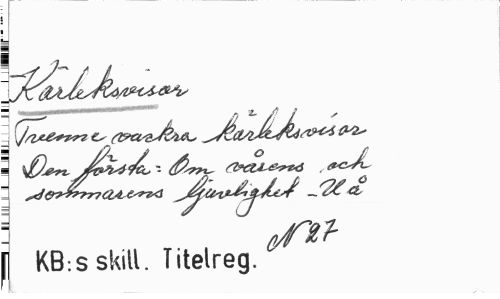 Kärleksvisor
Tvenne vackra kärleksvisor
Den första: Om vårens och
sommarens ljuvlighet - U å
N 27
KB:s skill. Titelreg.